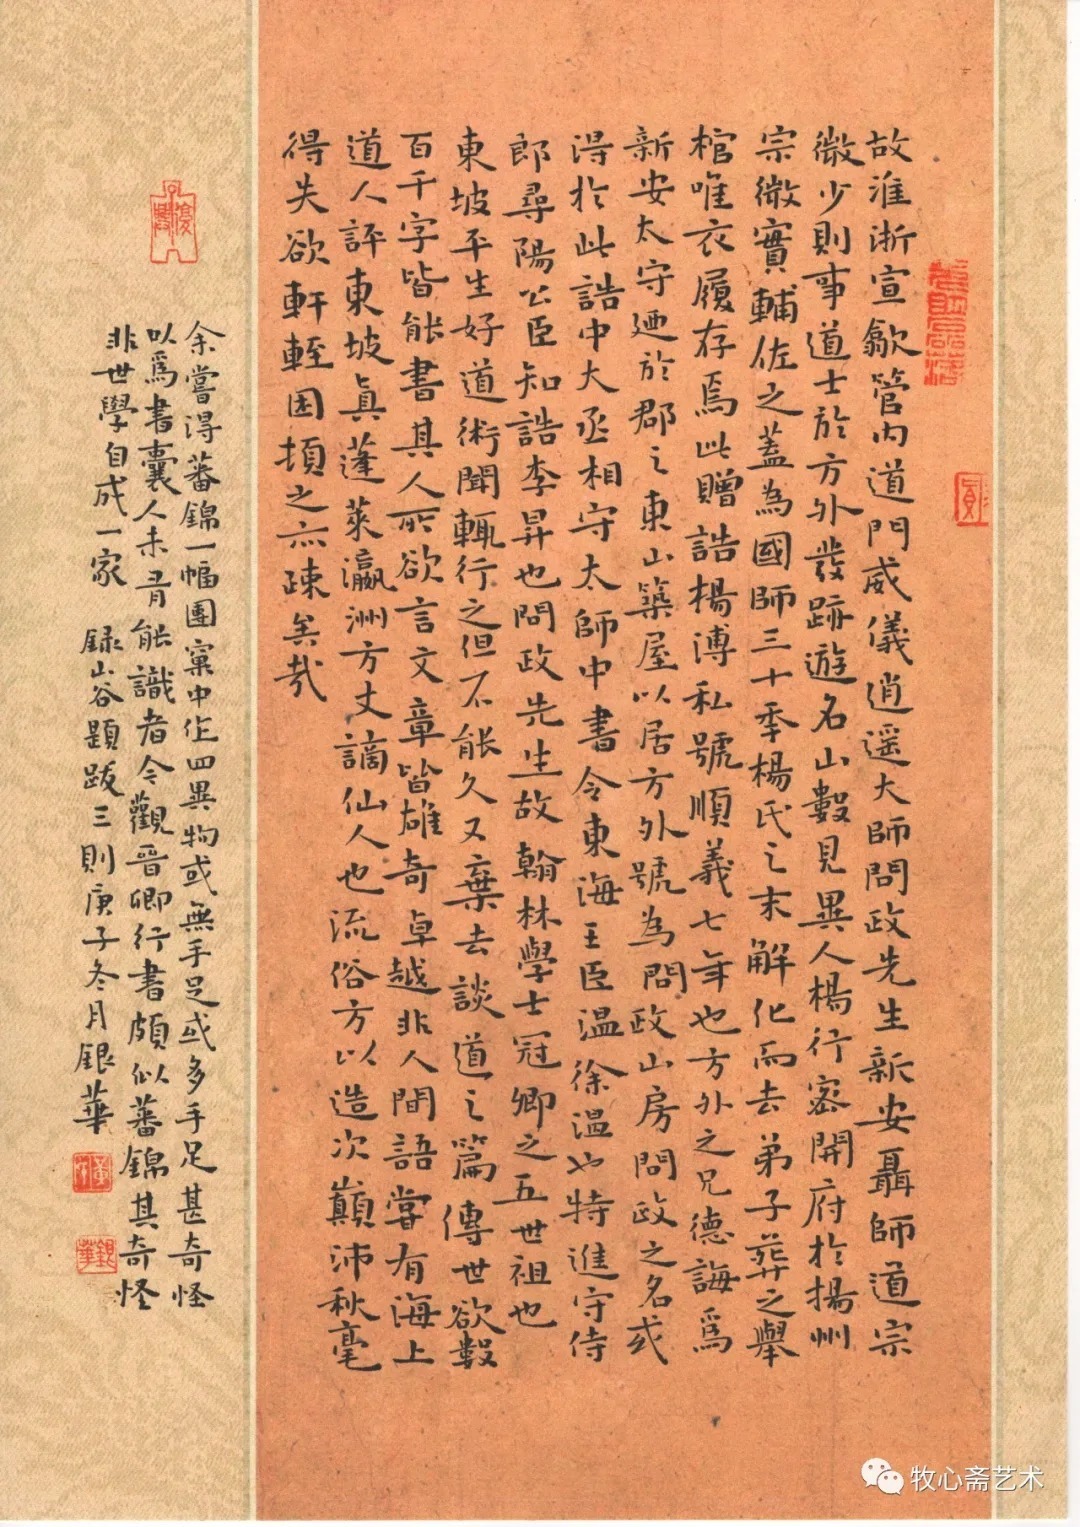 故淮浙宣歙管内道門威儀逍遥大師問政先生新安聶師道宗
微少則事道士於方外發跡遊名山數見異人楊行密開府於揚州
宗微實輔佐之蓋為國師三十季楊氏之末解化而去弟子葬之舉
棺唯衣履存焉此贈誥楊溥私號順義七年也方外之兄德誨爲
新安太守廼於郡之東山築屋以居方外號為問政山房問政之名或
得於此誥中大丞相守太師中書令東海王臣温徐温也特進守侍
郎尋陽公臣知誥李昇也問政先生故翰林學士冠卿之五世祖也
東坡平生好道術聞輒行之但不能久又棄去談道之篇傳世欲數
百千字皆能書其人所欲言文章皆雄奇卓越非人間語嘗有海上
道人評東坡真蓬萊瀛洲方丈謫仙人也流俗方以造次顛沛秋毫
得失欲軒輊困頓之亦疎矣哉
余嘗得蕃錦一幅團窠中作四異物或無手足或多手足甚奇怪
以爲書囊人未有能識者今觀晋卿行書頗似蕃錦其奇怪
非世學自成一家 録山谷題跋三則庚子冬月銀華
牧心斋艺术